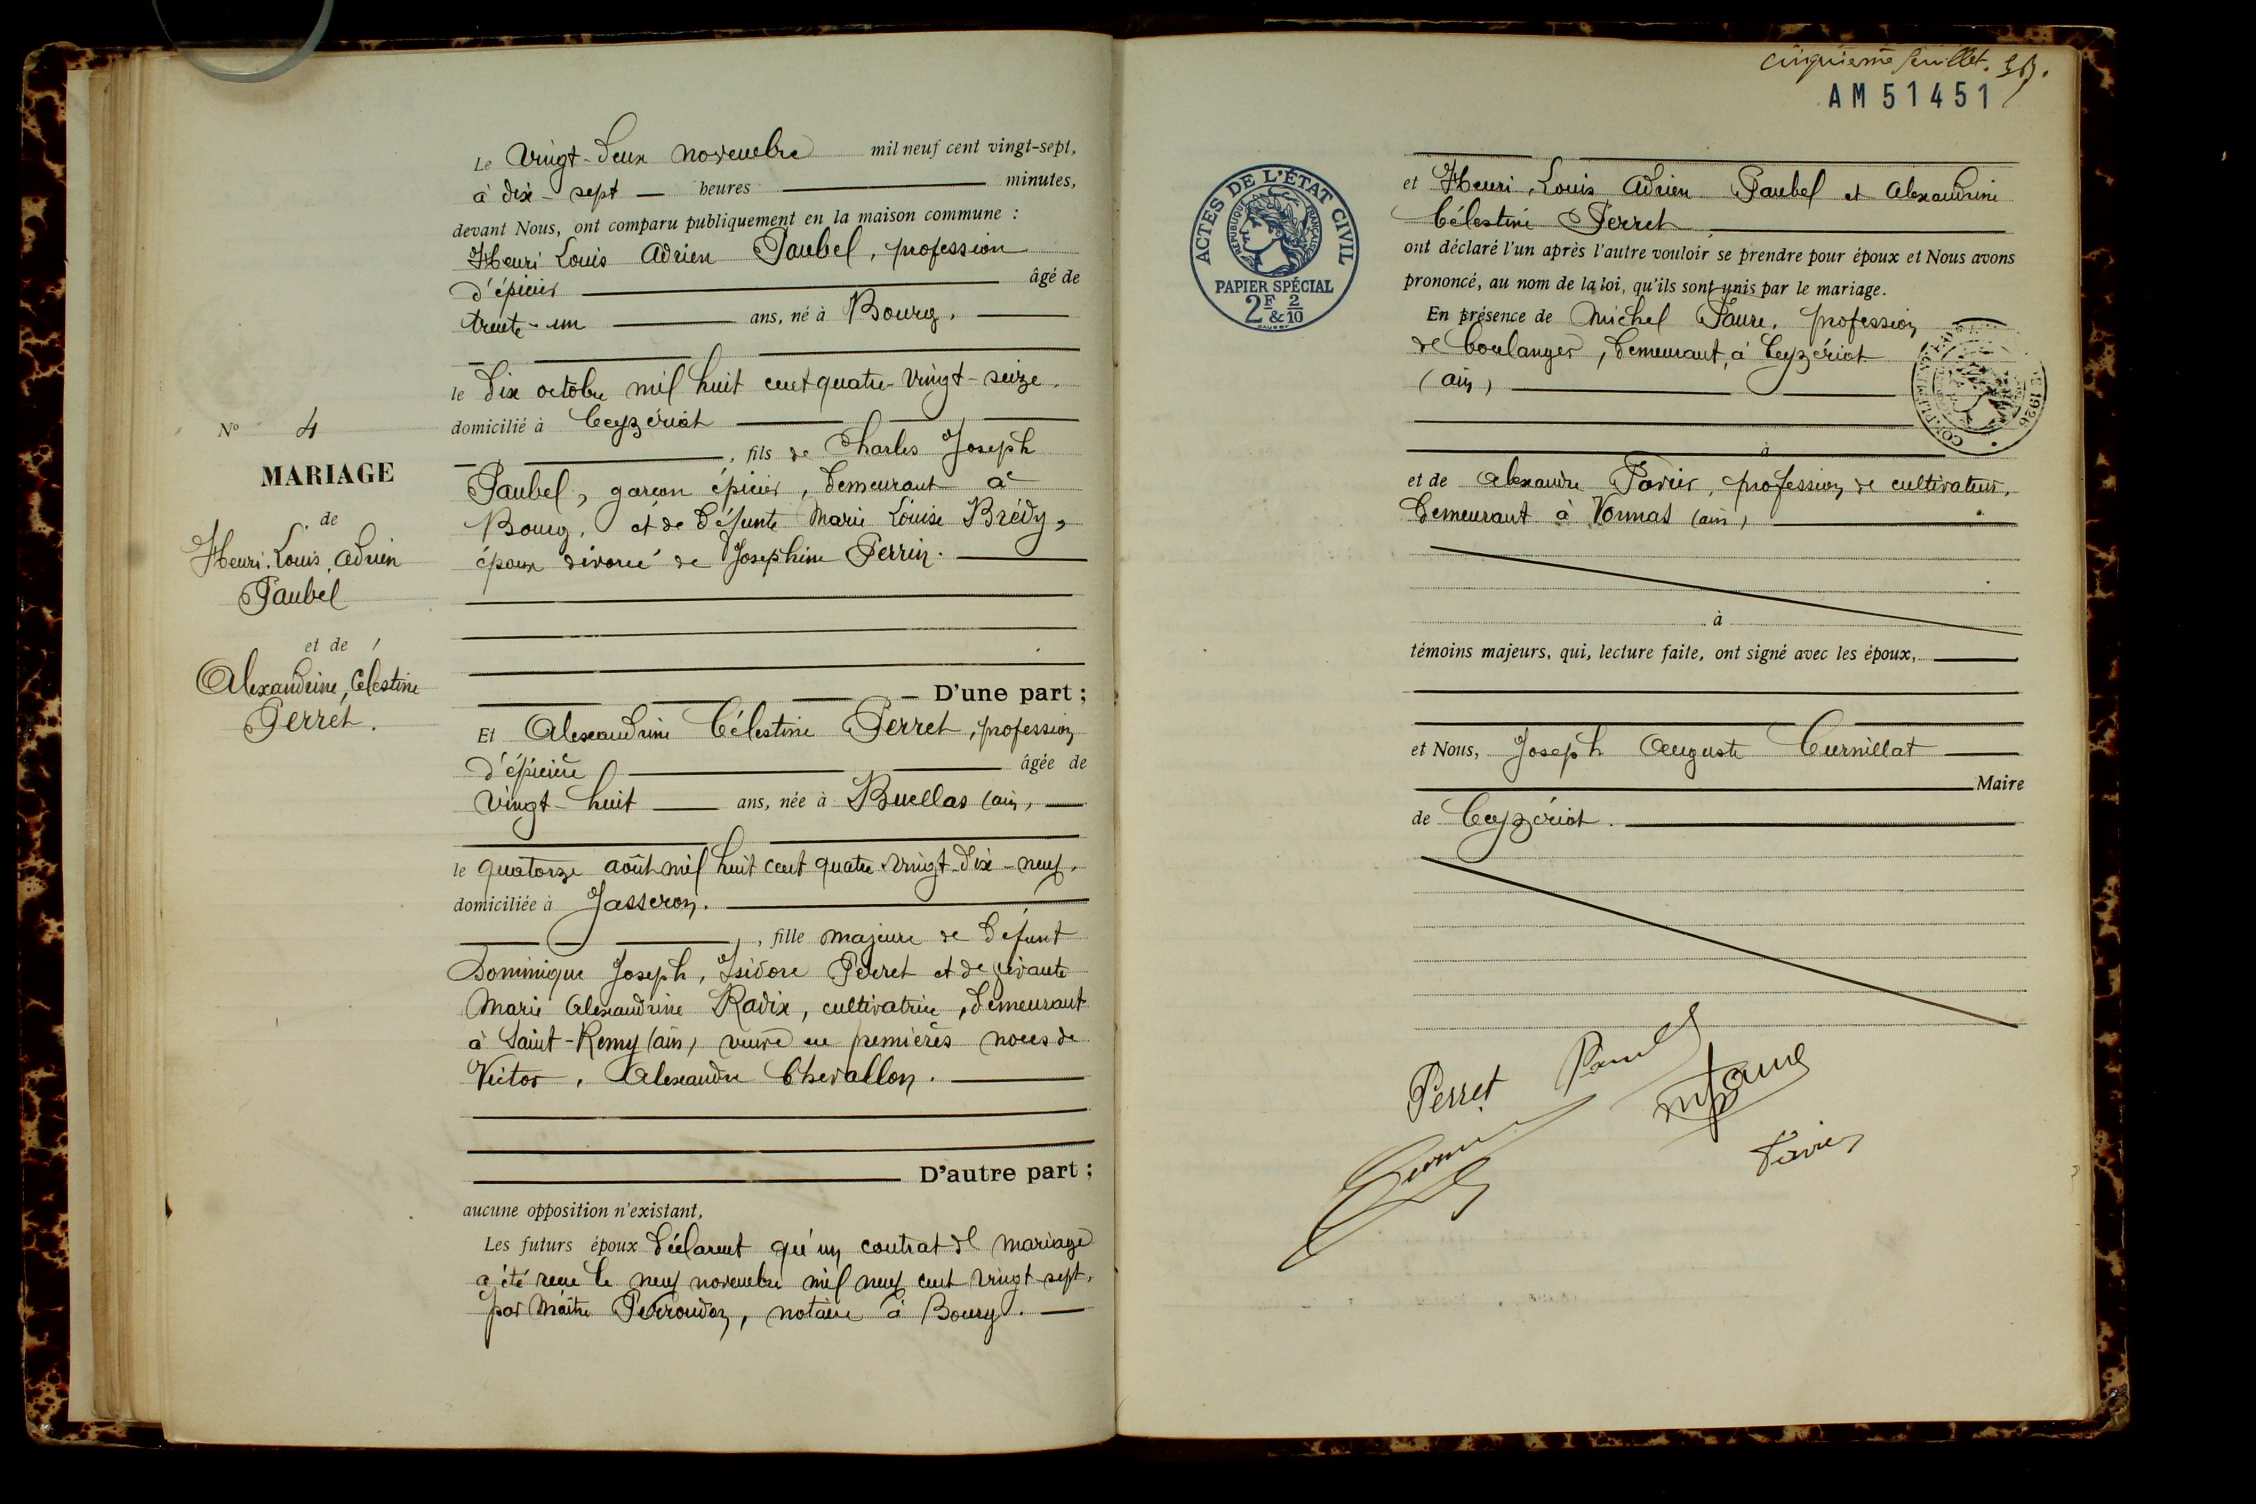 Le vingt-deux novembre mil neuf cent vingt-sept,
à dix-sept heures minutes,
devant Nous, ont comparu publiquement en la maison commune :
Henri Louis Adrien Paubel, profession
d'épicier âgé de
trente-un ans, né à Bourg,
le dix octobre mil huit cent quatre-vingt-seize,
domicilié à Ceyzériat
, fils de Charles Joseph
Paubel, garçon épicier, demeurant à
Bourg, et de défunte Marie Louise Brédy,
époux divorcé de Joséphine Perrin.
D'une part ;
Et Alexandrine Célestine Perret, profession
d'épicière âgée de
vingt-huit ans, née à Buellas (Ain),
le quatorze août mil huit cent quatre-vingt-dix-neuf,
domiciliée à Jasseron.
, fille majeure de défunt
Dominique Joseph, Isidore Perret et de vivante
Marie Alexandrine Radix, cultivatrice, demeurant
à Saint-Remy (Ain), veuve en premières noces de
Victor, Alexandre Chevallon.
D'autre part ;
aucune opposition n'existant,
Les futurs époux déclarent qu'un contrat de mariage
a été reçu le neuf novembre mil neuf cent vingt-sept,
par Maître Perroudon, notaire à Bourg.
N° 4
MARIAGE
de
Henri, Louis, Adrien
Paubel
et de
Alexandrine, Célestine
Perret.
cinquième feuillet.
AM 51451
ACTES DE L'ÉTAT CIVIL
RÉPUBLIQUE FRANÇAISE
PAPIER SPÉCIAL
2F & 2/10
et Henri, Louis Adrien Paubel et Alexandrine
Célestine Perret
ont déclaré l'un après l'autre vouloir se prendre pour époux et Nous avons
prononcé, au nom de la loi, qu'ils sont unis par le mariage.
En présence de Michel Faure, profession
de boulanger, demeurant à Ceyzériat
(Ain)
1926
à
et de Alexandre Favier, profession de cultivateur,
demeurant à Vonnas (Ain),
à
témoins majeurs, qui, lecture faite, ont signé avec les époux,
et Nous, Joseph Auguste Curnillat
Maire
de Ceyzériat.
Perret
Paubel
M Faure
Favier